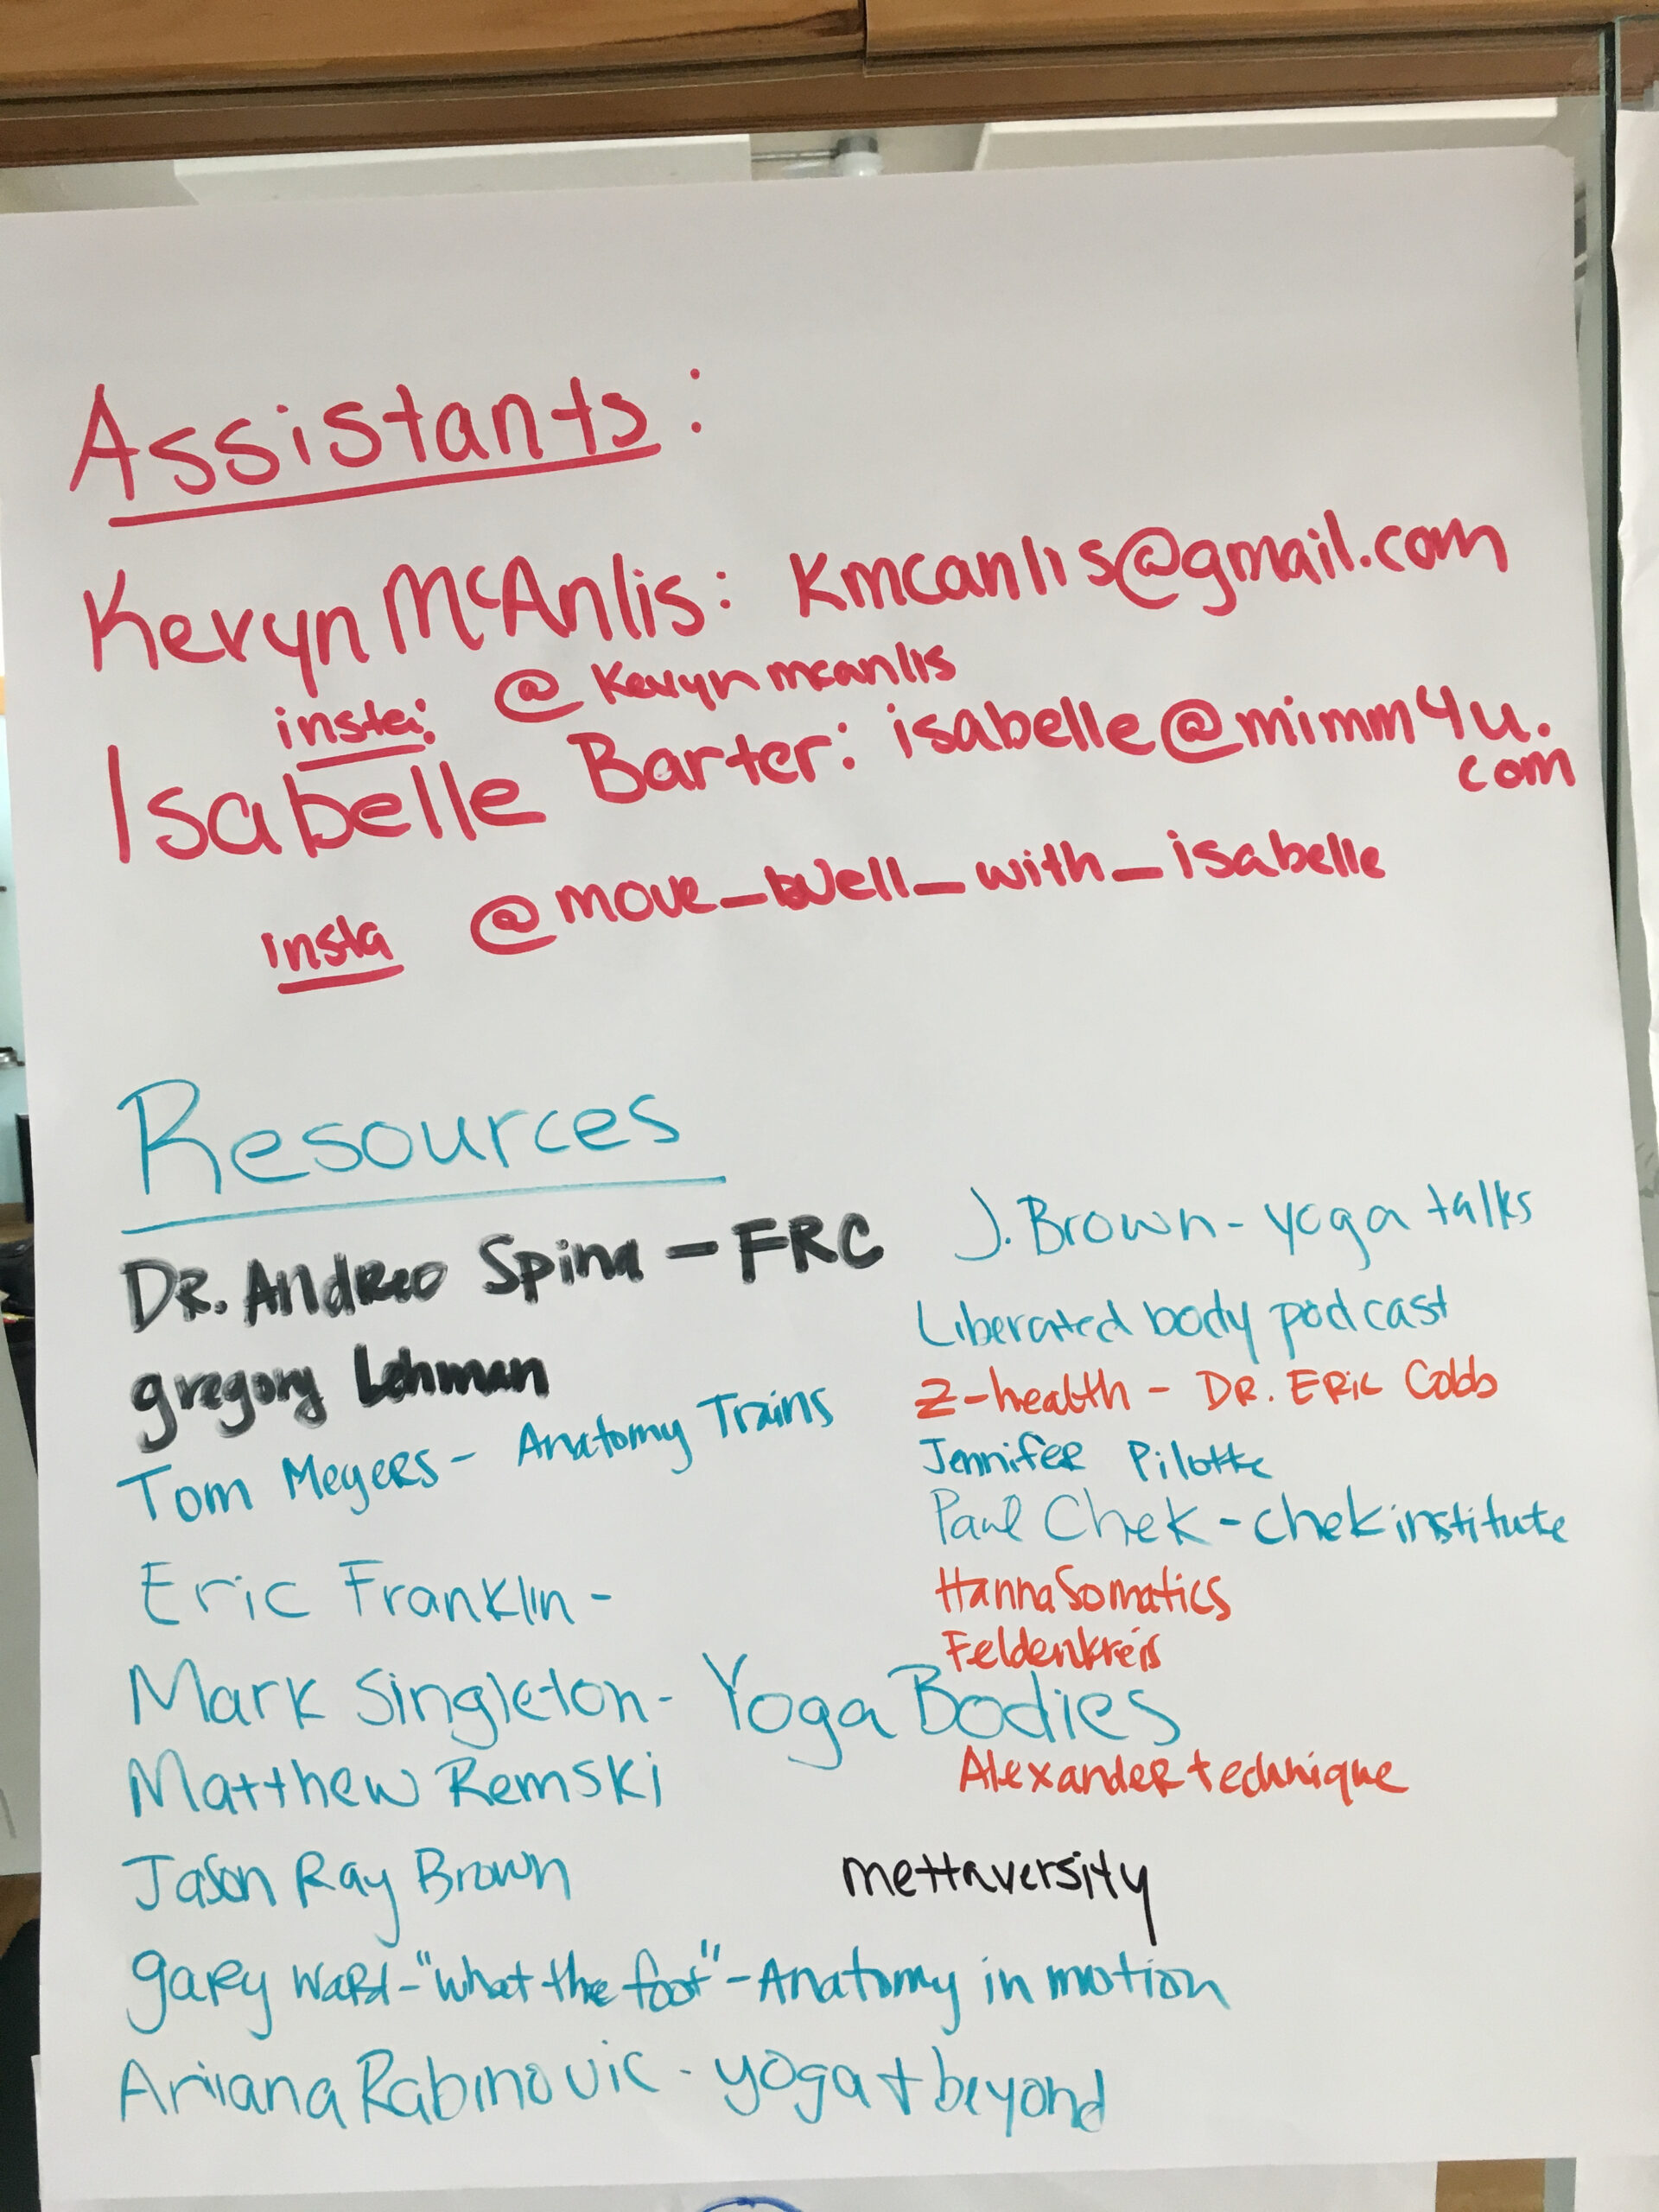 Assistants:
Kevyn McAnlis: Kmcanlis@gmail.com
insta: @Kevynmcanlis
Isabelle Barter: isabelle@mimm4u.
com
insta @move_Well_with_isabelle
Resources
DR. Andreo Spina - FRC
gregory Lehman
Tom Meyers - Anatomy Trains
Eric Franklin -
Mark Singleton - Yoga Bodies
Matthew Remski
Jason Ray Brown
gary Ward - "what the foot" - Anatomy in motion
Ariana Rabinovic - yoga + beyond
J. Brown - yoga talks
Liberated body podcast
Z-health - DR. ERic Cobb
Jennifer Pilotte
Paul Chek - chek institute
Hanna Somatics
Feldenkreis
Alexander technique
mettaversity